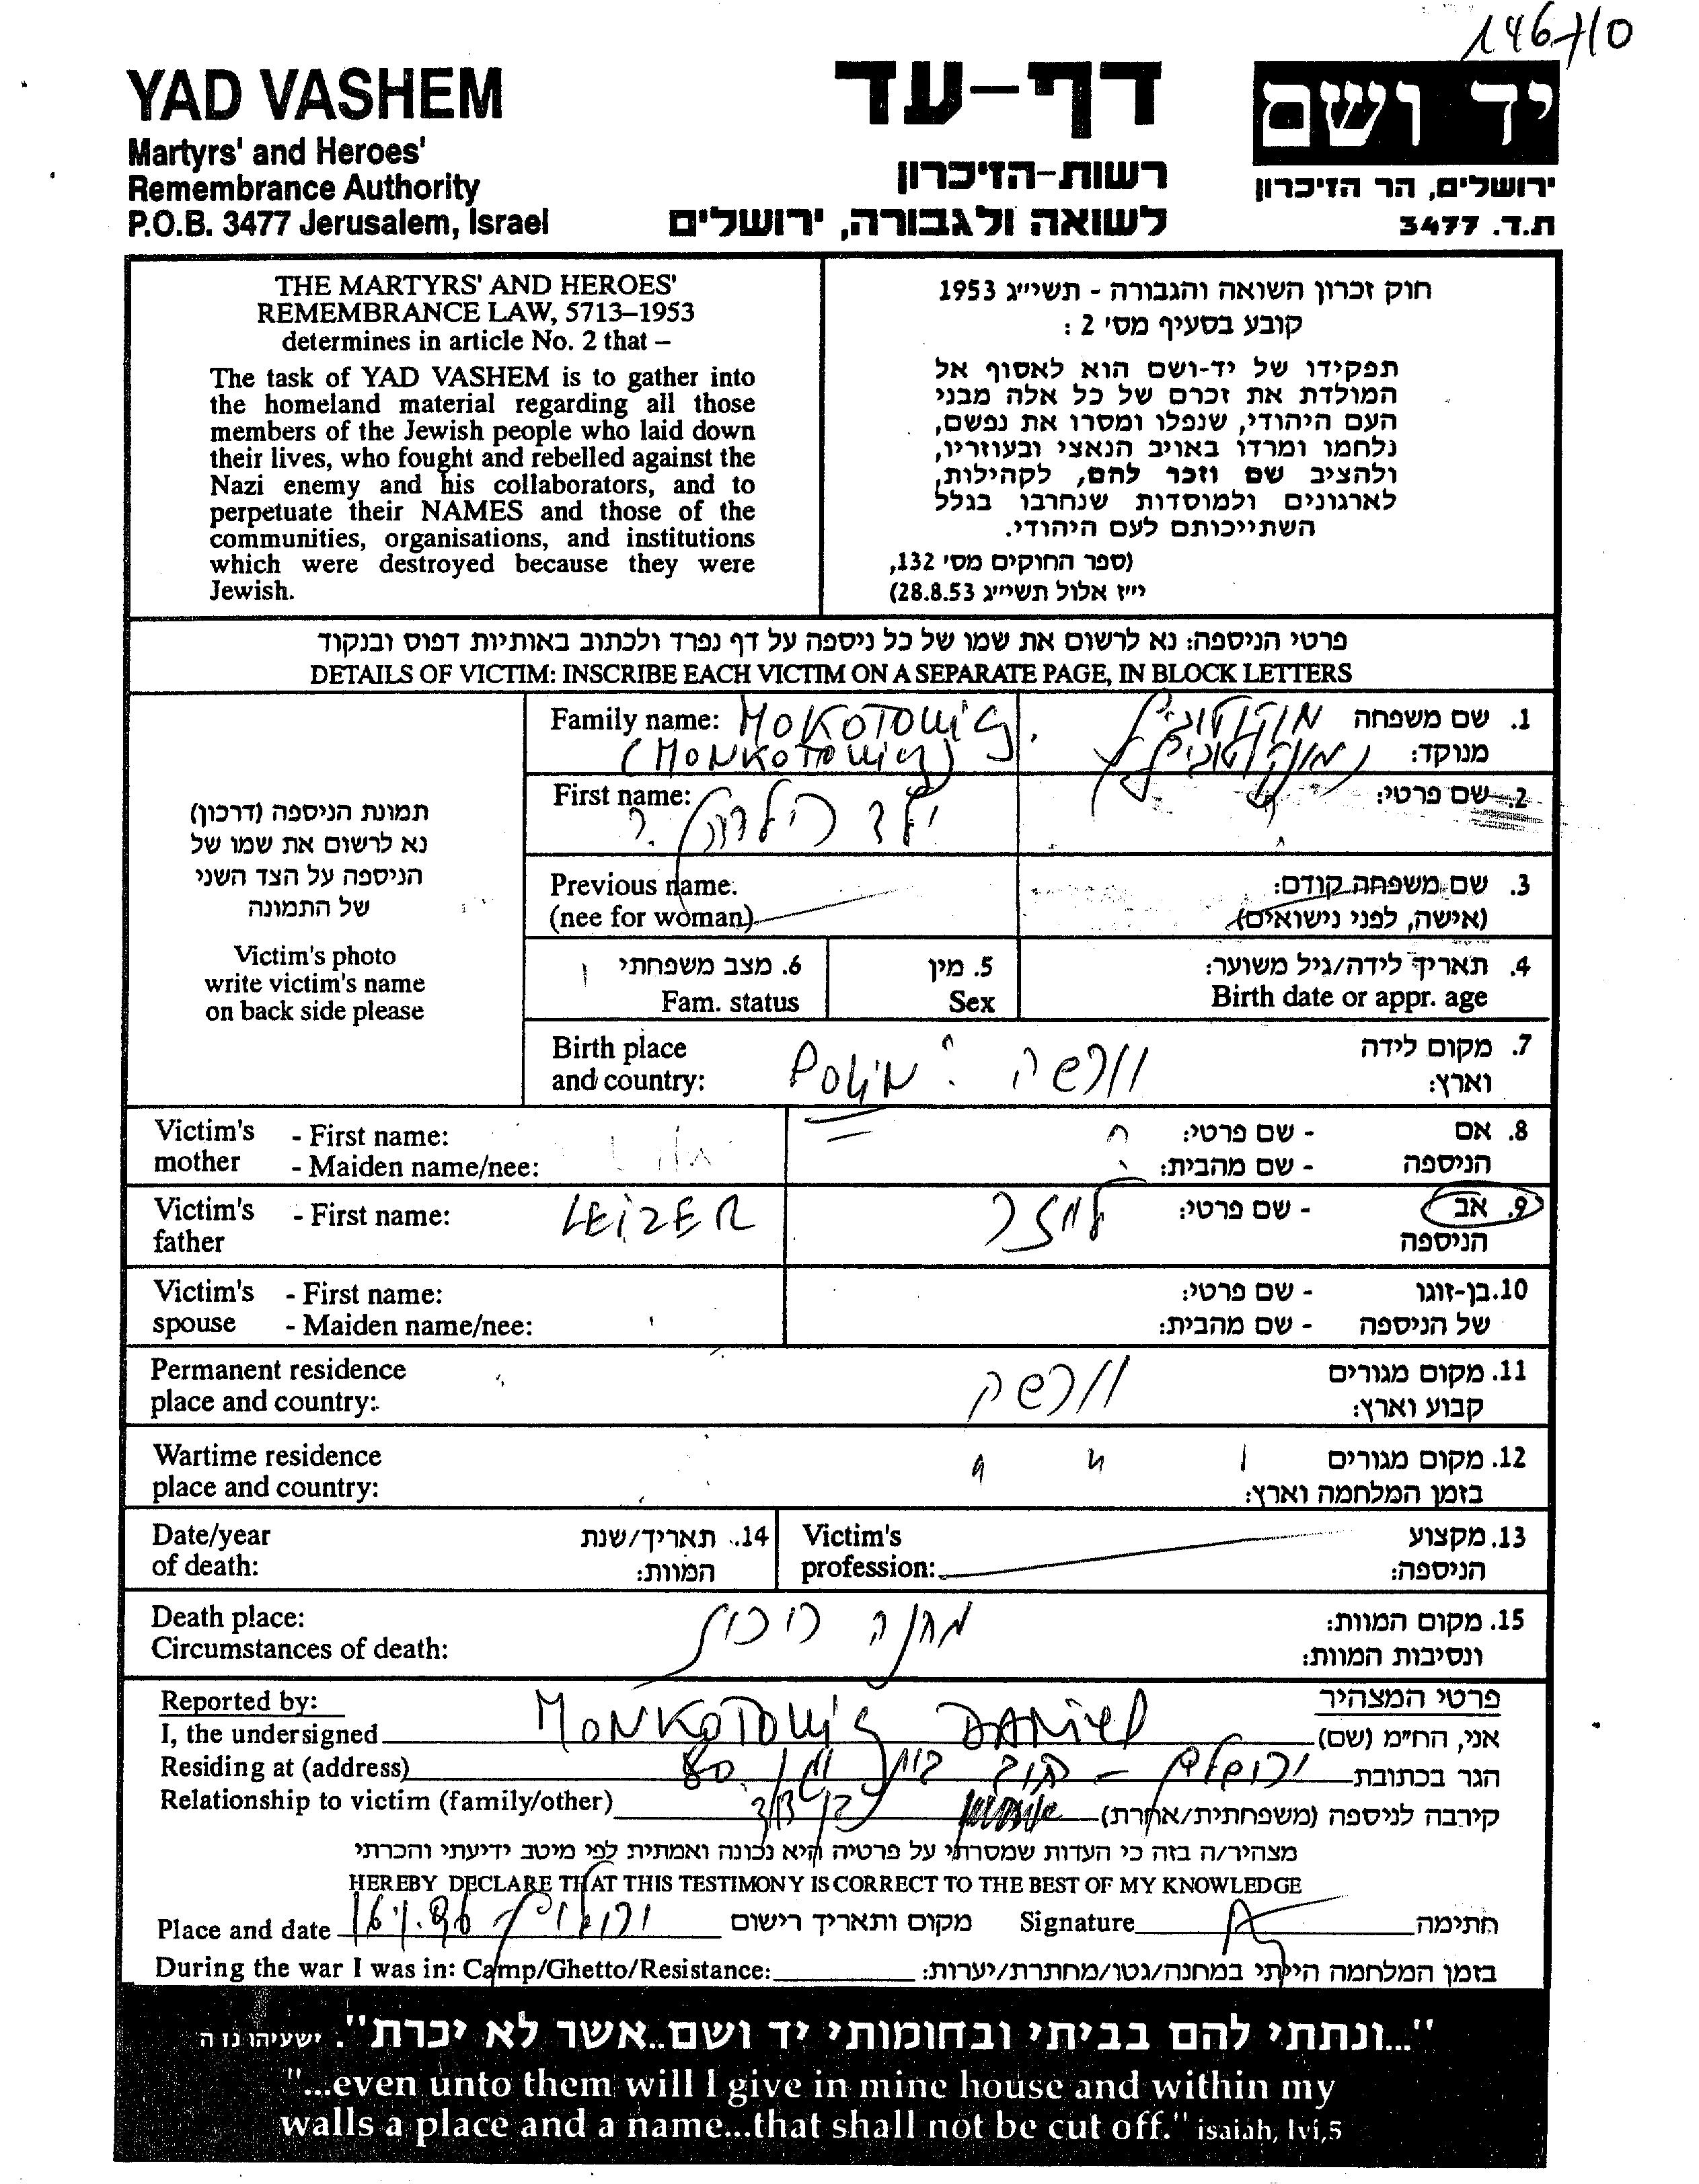 146710
YAD VASHEM
Martyrs' and Heroes'
Remembrance Authority
P.O.B. 3477 Jerusalem, Israel
דף-עד
רשות-הזיכרון
לשואה ולגבורה, ירושלים
יד ושם
ירושלים, הר הזיכרון
ת.ד. 3477
THE MARTYRS' AND HEROES'
REMEMBRANCE LAW, 5713–1953
determines in article No. 2 that –
The task of YAD VASHEM is to gather into
the homeland material regarding all those
members of the Jewish people who laid down
their lives, who fought and rebelled against the
Nazi enemy and his collaborators, and to
perpetuate their NAMES and those of the
communities, organisations, and institutions
which were destroyed because they were
Jewish.
חוק זכרון השואה והגבורה - תשי״ג 1953
קובע בסעיף מס׳ 2 :
תפקידו של יד-ושם הוא לאסוף אל
המולדת את זכרם של כל אלה מבני
העם היהודי, שנפלו ומסרו את נפשם,
נלחמו ומרדו באויב הנאצי ובעוזריו,
ולהציב שם וזכר להם, לקהילות,
לארגונים ולמוסדות שנחרבו בגלל
השתייכותם לעם היהודי.
(ספר החוקים מס׳ 132,
י״ז אלול תשי״ג 28.8.53)
פרטי הניספה: נא לרשום את שמו של כל ניספה על דף נפרד ולכתוב באותיות דפוס ובנקוד
DETAILS OF VICTIM: INSCRIBE EACH VICTIM ON A SEPARATE PAGE, IN BLOCK LETTERS
תמונת הניספה (דרכון)
נא לרשום את שמו של
הניספה על הצד השני
של התמונה
Victim's photo
write victim's name
on back side please
Family name: MOKOTOWiG מוקוטוביץ 1. שם משפחה
(MONKOTOWiCz) (מונקוטוביץ) מנוקד:
First name: ילד 2. שם פרטי:
Previous name: 3. שם משפחה קודם:
(nee for woman) (אישה, לפני נישואים)
6. מצב משפחתי 5. מין 4. תאריך לידה/גיל משוער:
Fam. status Sex Birth date or appr. age
Birth place POLiN: ווארשה 7. מקום לידה
and country: וארץ:
Victim's - First name: - שם פרטי: 8. אם
mother - Maiden name/nee: - שם מהבית: הניספה
Victim's - First name: LEiZER לייזר - שם פרטי: 9. אב
father הניספה
Victim's - First name: - שם פרטי: 10. בן-זוגו
spouse - Maiden name/nee: - שם מהבית: של הניספה
Permanent residence וורשה 11. מקום מגורים
place and country: קבוע וארץ:
Wartime residence 12. מקום מגורים
place and country: בזמן המלחמה וארץ:
Date/year 14. תאריך/שנת Victim's 13. מקצוע
of death: המוות: profession: הניספה:
Death place: מחנה ריכוז 15. מקום המוות:
Circumstances of death: ונסיבות המוות:
Reported by: פרטי המצהיר
I, the undersigned MONKOTOWiG DANiEL אני, הח״מ (שם)
Residing at (address) ירושלים - רחוב בית וגן 80 הגר בכתובת
Relationship to victim (family/other) בן דוד קירבה לניספה (משפחתית/אחרת)
מצהיר/ה בזה כי העדות שמסרתי על פרטיה היא נכונה ואמתית לפי מיטב ידיעתי והכרתי
HEREBY DECLARE THAT THIS TESTIMONY IS CORRECT TO THE BEST OF MY KNOWLEDGE
Place and date ירושלים מקום ותאריך רישום Signature חתימה
During the war I was in: Camp/Ghetto/Resistance: בזמן המלחמה הייתי במחנה/גטו/מחתרת/יערות:
"...ונתתי להם בביתי ובחומותי יד ושם..אשר לא יכרת". ישעיהו נו ה
"...even unto them will I give in mine house and within my
walls a place and a name...that shall not be cut off." isaiah, lvi,5